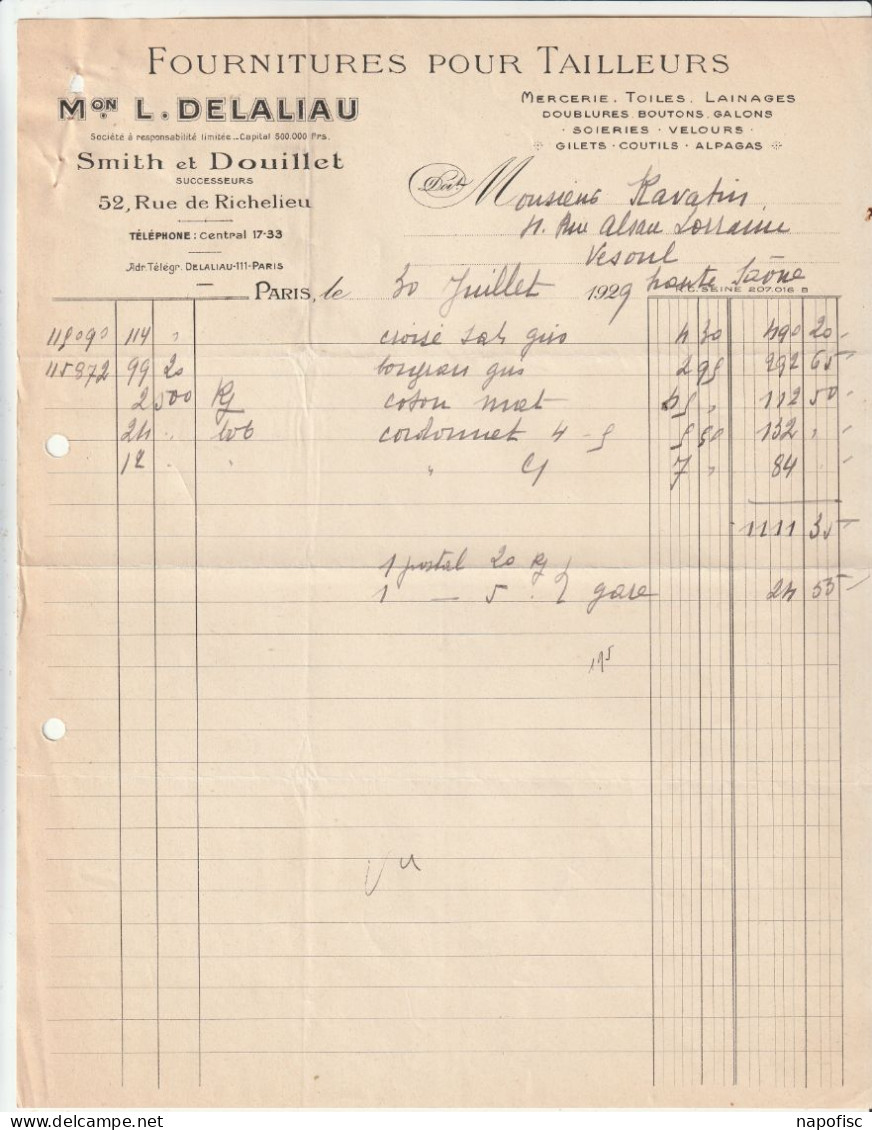 FOURNITURES POUR TAILLEURS
MON L. DELALIAU
Société à responsabilité limitée _ Capital 500.000 Frs.
Smith et Douillet
SUCCESSEURS
52, Rue de Richelieu
TÉLÉPHONE : Central 17-33
Adr. Télégr. DELALIAU-111-PARIS
MERCERIE. TOILES. LAINAGES
DOUBLURES. BOUTONS. GALONS
· SOIERIES · VELOURS ·
GILETS · COUTILS · ALPAGAS
Doit Monsieur Ravatin
Rue Alsace Lorraine
Vesoul
Haute Saône
PARIS, le 30 Juillet 1929
R.C. SEINE 207.016 B
114 " croisé gris 4 30 490 20
115872 99 20 bougran gris 2 95 292 65
2 500 Kg coton mat 45 " 112 50
24 " cordonnet 4 - 5 5 50 132 "
12 " " 7 " 84
1111 35
1 postal 20 Kg
1 — 5 " gare 24 55
Vu
napofisc